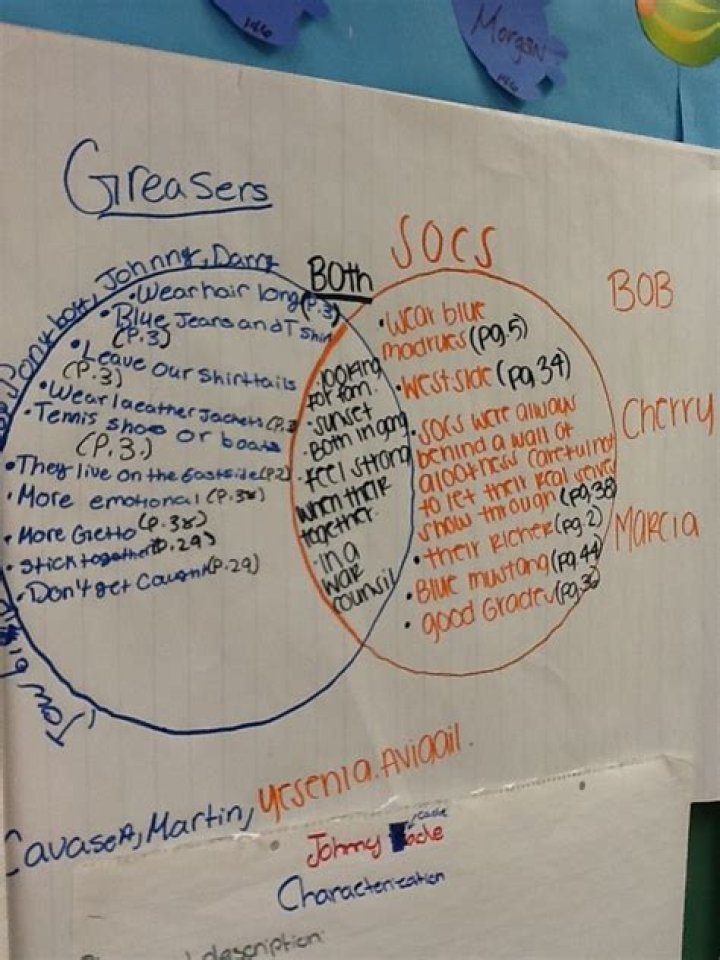 146
Morgan
146
Greasers
SOCS
Both
BOB
Cherry
Marcia
Ponyboy, Johnny, Darry
• Wear hair long (P.3)
• Blue Jeans and T Shirt
(P.3)
• Leave our Shirttails
(P.3)
• Wear laeather Jackets (P.3
• Tennis shoe or boats
(P.3.)
• They live on the Eastside (P.2)
• More emotional (P.38)
• More Gietto (P.38)
• Stick together (P.29)
• Don't get Caught (P.29)
Tow bit
· looking
for fam.
· sunset
· Both in gang
· feel strong
when their
together.
· in a
war
counsil
• Wear blue
madrues (pg.5)
• West side (pg.34)
• Socs were always
behind a wall of
alootness careful not
to let their real selves
show through (pg.38)
• their Richer (pg.2)
• Blue mustang (pg.44)
• good Grades (pg.36)
Martin, Yesenia. Avigail.
Johnny
cade
Characterization
description: